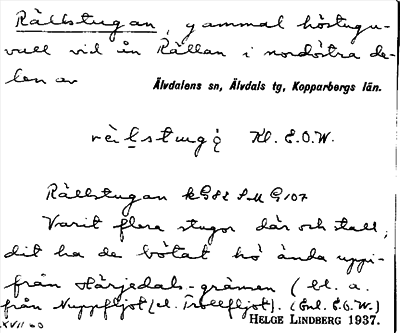 Rällstugan, gammal höstugu-
vall vid ån Rällan i nordöstra de-
len av Älvdalens sn, Älvdals tg, Kopparbergs län.
Kl. E.O.W.
Rällstugan kG82 SMG107
Varit flera stugor där och stall,
dit ha de bötat hö ända uppi-
från Härjedals-gränsen (bl. a.
från Nuppfljot/el. Trollfljot). (Enl. E.O.W.)
XVII
HELGE LINDBERG 1937.